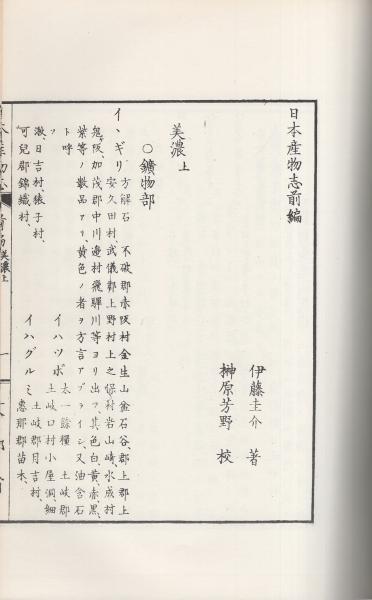 日本産物志前編
伊藤圭介 著
榊原芳野 校
美濃上
○鑛物部
イヽギリ 方解石 不破郡赤阪村金生山釜石谷、郡上郡上
安久田村、武儀郡上野村上之保村岩山崎、水成村
鬼阪、加茂郡中川邊村飛驒川等ヨリ出ツ、其色白、黄、赤、黒、
紫等ノ數品アリ、黄色ノ者ヲ方言アブライシ又油含石
ト呼
イハツボ 太一餘糧 土岐郡
土岐口村小屋洞、細
ツ
イハグルミ 土岐郡月吉村、
惠那郡苗木、
激、日吉村、猿子村、
可兒郡錦織村、
美濃上
一